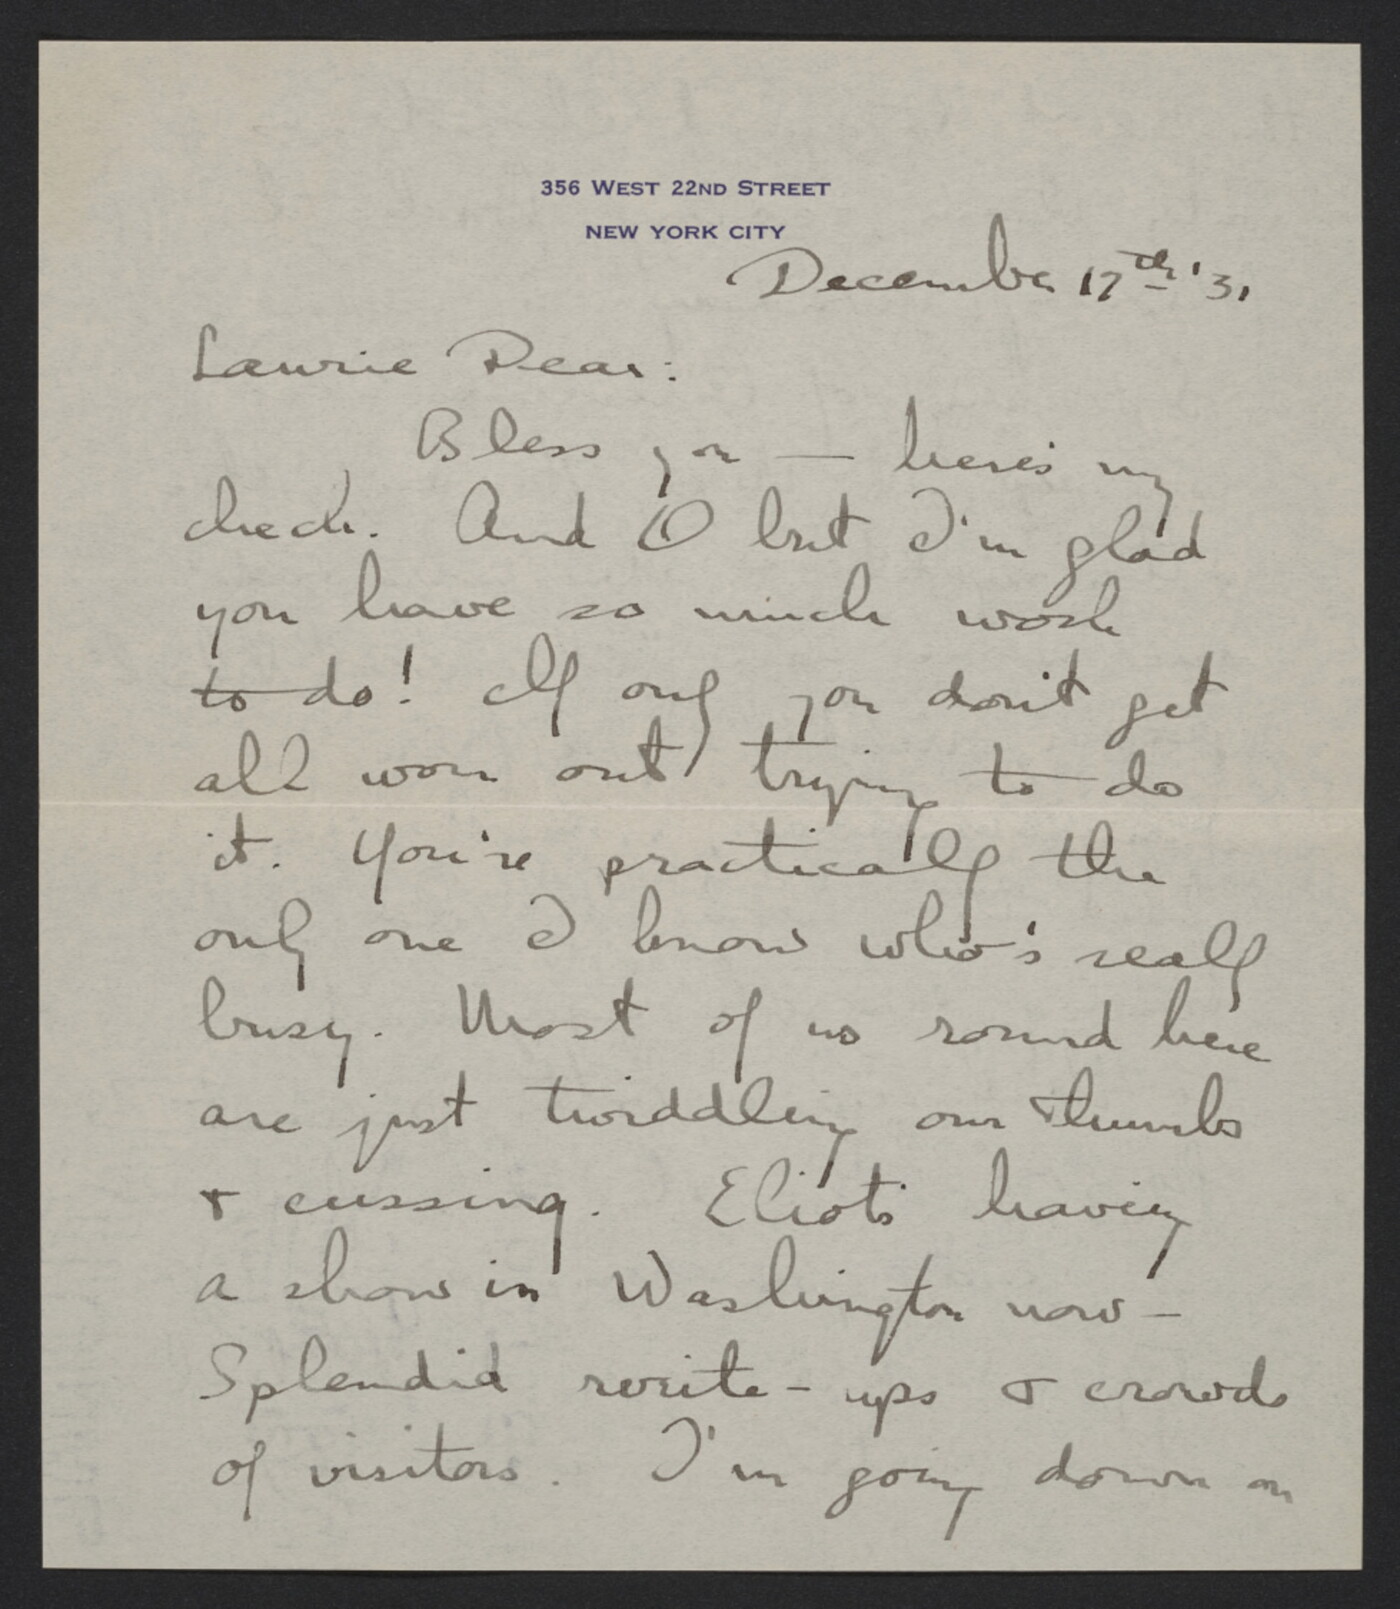 356 WEST 22ND STREET
NEW YORK CITY
December 17th '31
Laurie Dear:
Bless you — here's my
check. And O but I'm glad
you have so much work
to do! If only you don't get
all worn out trying to do
it. You're practically the
only one I know who's really
busy. Most of us round here
are just twiddling our thumbs
& cussing. Eliot's having
a show in Washington now –
Splendid write-ups & crowds
of visitors. I'm going down on